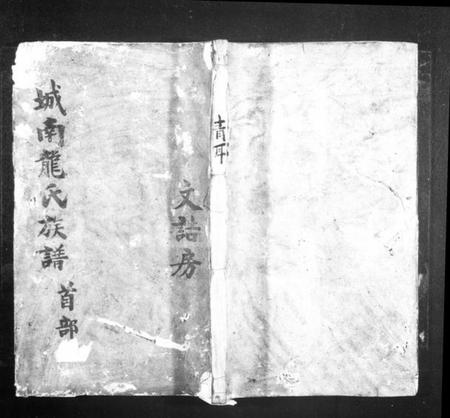 城南龍氏族譜
首部
文誥房
青耳